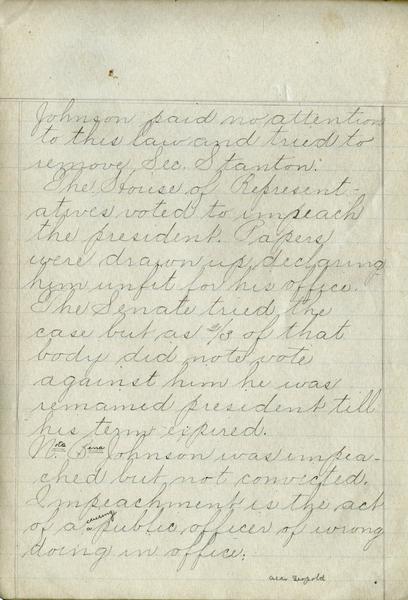 Johnson paid no attention
to this law and tried to
remove Sec. Stanton.
The House of Represent-
atives voted to impeach
the president. Papers
were drawn up declaring
him unfit for his office.
The Senate tried the
case but as 2/3 of that
body did note vote
against him he was
remained president till
his term expired.
Nota Bena Johnson was impea-
ched but not convicted.
Impeachment is the act
of accusing a public officer of wrong
doing in office.
Leopold